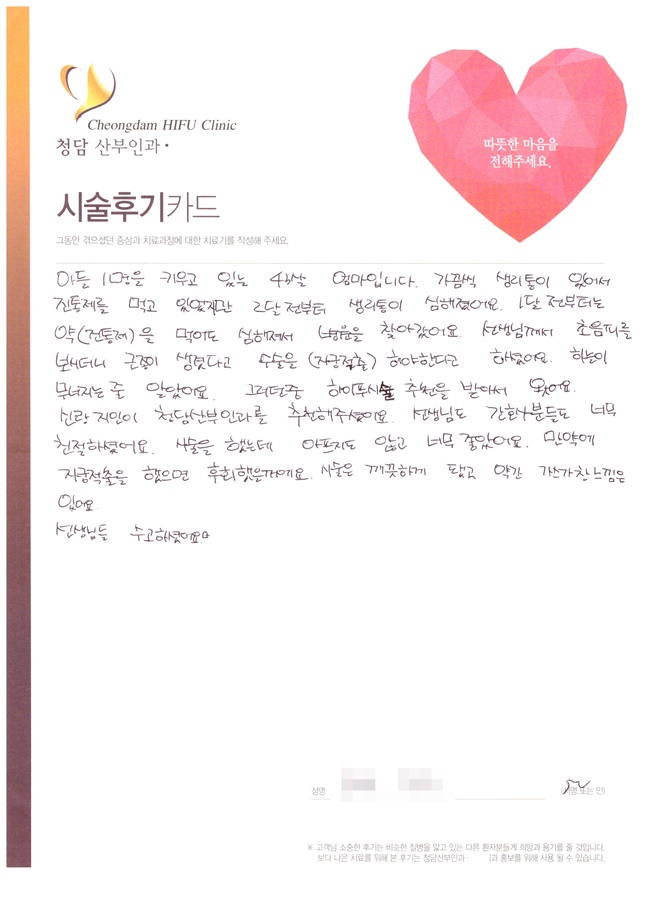 Cheongdam HIFU Clinic
청담 산부인과·
따뜻한 마음을
전해주세요.
시술후기카드
그동안 겪으셨던 증상과 치료과정에 대한 치료기를 작성해 주세요.
아들 1명을 키우고 있는 43살 엄마입니다. 가끔씩 생리통이 있어서
진통제를 먹고 있었지만 2달전부터 생리통이 심해졌어요. 1달 전부터는
약(진통제)을 먹어도 심해져서 병원을 찾아갔어요. 선생님께서 초음파를
보시더니 근종이 생겼다고 수술은 (자궁적출) 하야한다고 하셨어요. 하늘이
무너지는 줄 알았어요. 그러던중 하이푸시술 추천을 받아서 왔어요.
신랑 지인이 청담산부인과를 추천해주셨어요. 선생님도 간호사분들도 너무
친절하셨어요. 시술을 했는데 아프지도 않고 너무 좋았어요. 만약에
자궁적출을 했으면 후회했을거에요. 시술은 깨끗하게 됐고 약간 가스가찬 느낌은
있어요.
선생님들 수고하셨어요
성명
(서명 또는 인)
※ 고객님 소중한 후기는 비슷한 질병을 앓고 있는 다른 환자분들게 희망과 용기를 줄 것입니다.
보다 나은 치료를 위해 본 후기는 청담산부인과· 과 홍보를 위해 사용 될 수 있습니다.